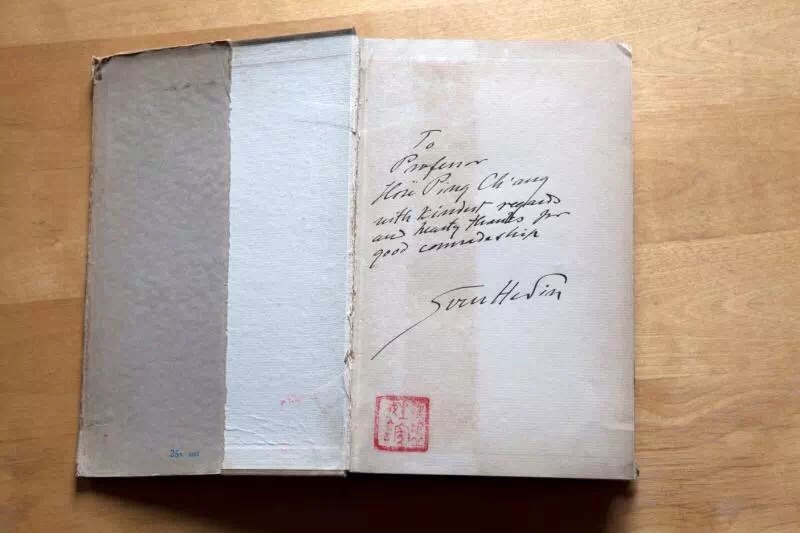 To
Professor
Hsü Ping Ch'ang
with kindest regards
and hearty thanks for
good comradeship
Sven Hedin